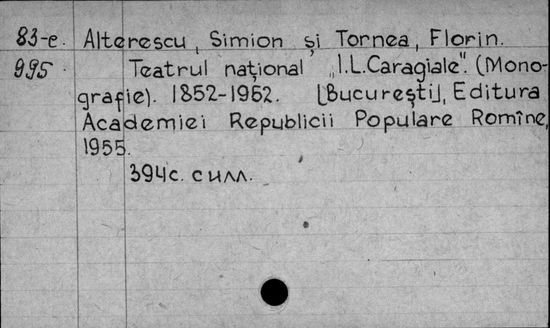 83-е. Alterescu, Simion şi Tornea, Florin.
995. Teatrul naţional „I.L.Caragiale". (Mono-
grafie). 1852-1952. [Bucureşti], Editura
Academiei Republicii Populare Romîne,
1955.
394с. с илл.